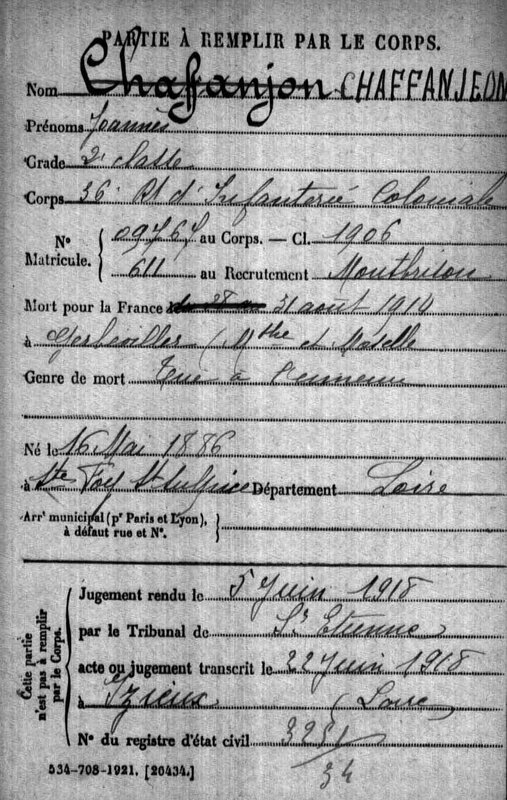 PARTIE À REMPLIR PAR LE CORPS.
Nom Chaffanjon CHAFFANJEON
Prénoms Joannès
Grade 2e classe
Corps 36e Rt d'Infanterie Coloniale
N° Matricule. { 09767 au Corps. — Cl. 1906
611 au Recrutement Montbrison
Mort pour la France le du 28 au 31 août 1914
à Gerbeviller (Mthe et Moselle
Genre de mort Tué à l'ennemi
Né le 16 Mai 1886
à Ste Foy St Sulpice Département Loire
Arrt municipal (pr Paris et Lyon), à défaut rue et N°. {
Cette partie n'est pas à remplir par le Corps. {
Jugement rendu le 5 Juin 1918
par le Tribunal de St Etienne
acte ou jugement transcrit le 22 Juin 1918
à Izieux (Loire)
N° du registre d'état civil
34
534-708-1921. [20434.]